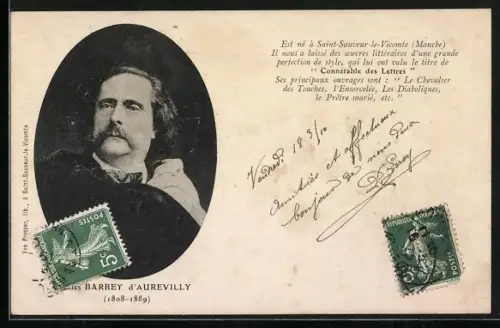 Est né à Saint-Sauveur-le-Vicomte (Manche)
Il nous a laissé des œuvres littéraires d'une grande
perfection de style, qui lui ont valu le titre de
“ Connétable des Lettres ”
Ses principaux ouvrages sont : “ Le Chevalier
des Touches, l'Ensorcelée, Les Diaboliques,
le Prêtre marié, etc. ”
Vendredi 18 3/10
amitiés et affectueux
bonjour de nous deux
Vve Prosper, lib., à Saint-Sauveur-le-Vicomte
POSTES
5c
BARBEY d'AUREVILLY
(1808-1889)